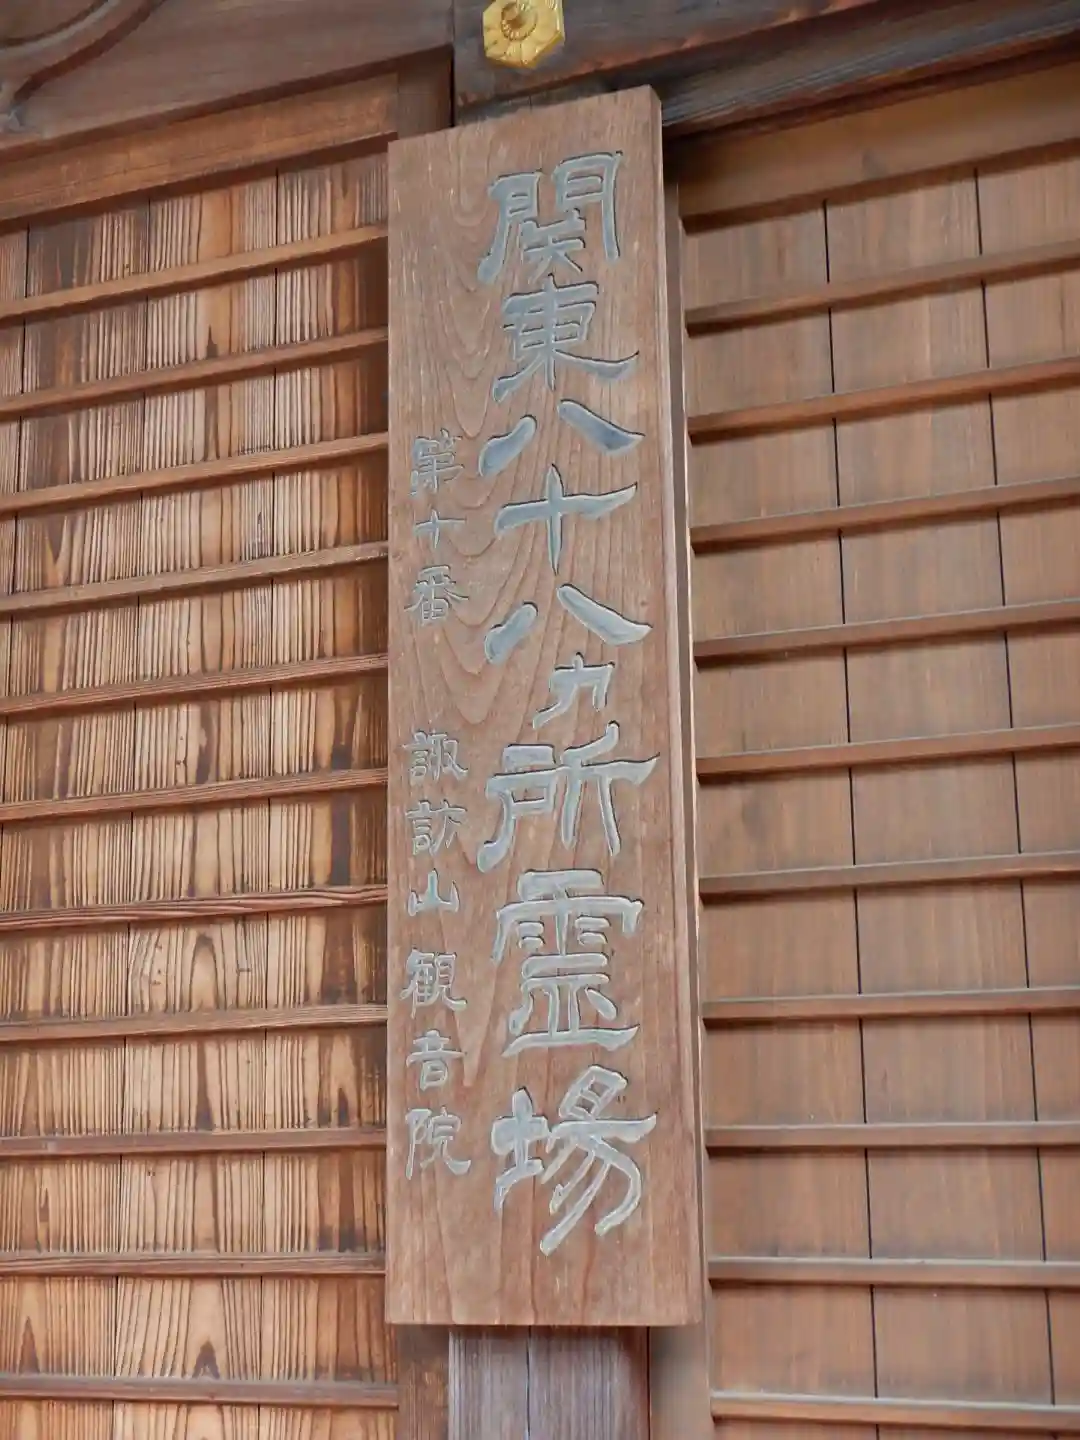 関東八十八ヵ所霊場
第十番 諏訪山観音院